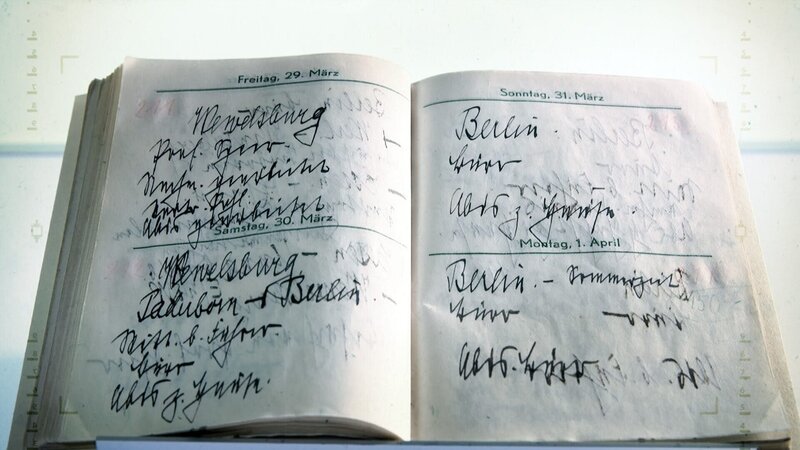 Freitag, 29. März
Wewelsburg
Prof.
Nachm. gearbeitet
Abds gearbeitet
Samstag, 30. März
Wewelsburg -
Paderborn - Berlin
Mitt. b. Führer.
Büro
Abds z. Hause.
Sonntag, 31. März
Berlin.
Büro
Abds z. Hause.
Montag, 1. April
Berlin. - Sommerzeit
Büro
Abds. Büro